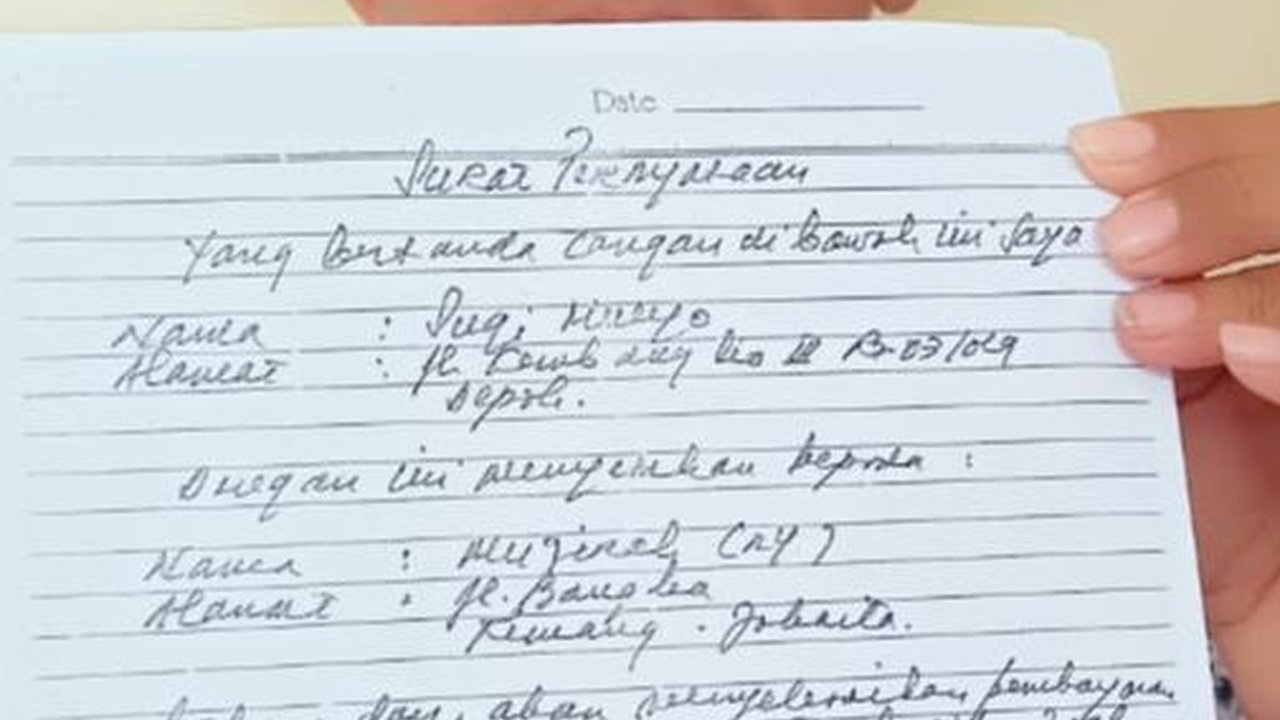 Date
Surat Pernyataan
Yang bertanda tangan di bawah ini saya
Nama :
Alamat : Jl. Kembang III B-03/029
Depok.
Dengan ini kepada :
Nama : Muginah (NY)
Alamat : Jl. Bangka
Kemang . Jakarta.
akan menyelesaikan pembayaran